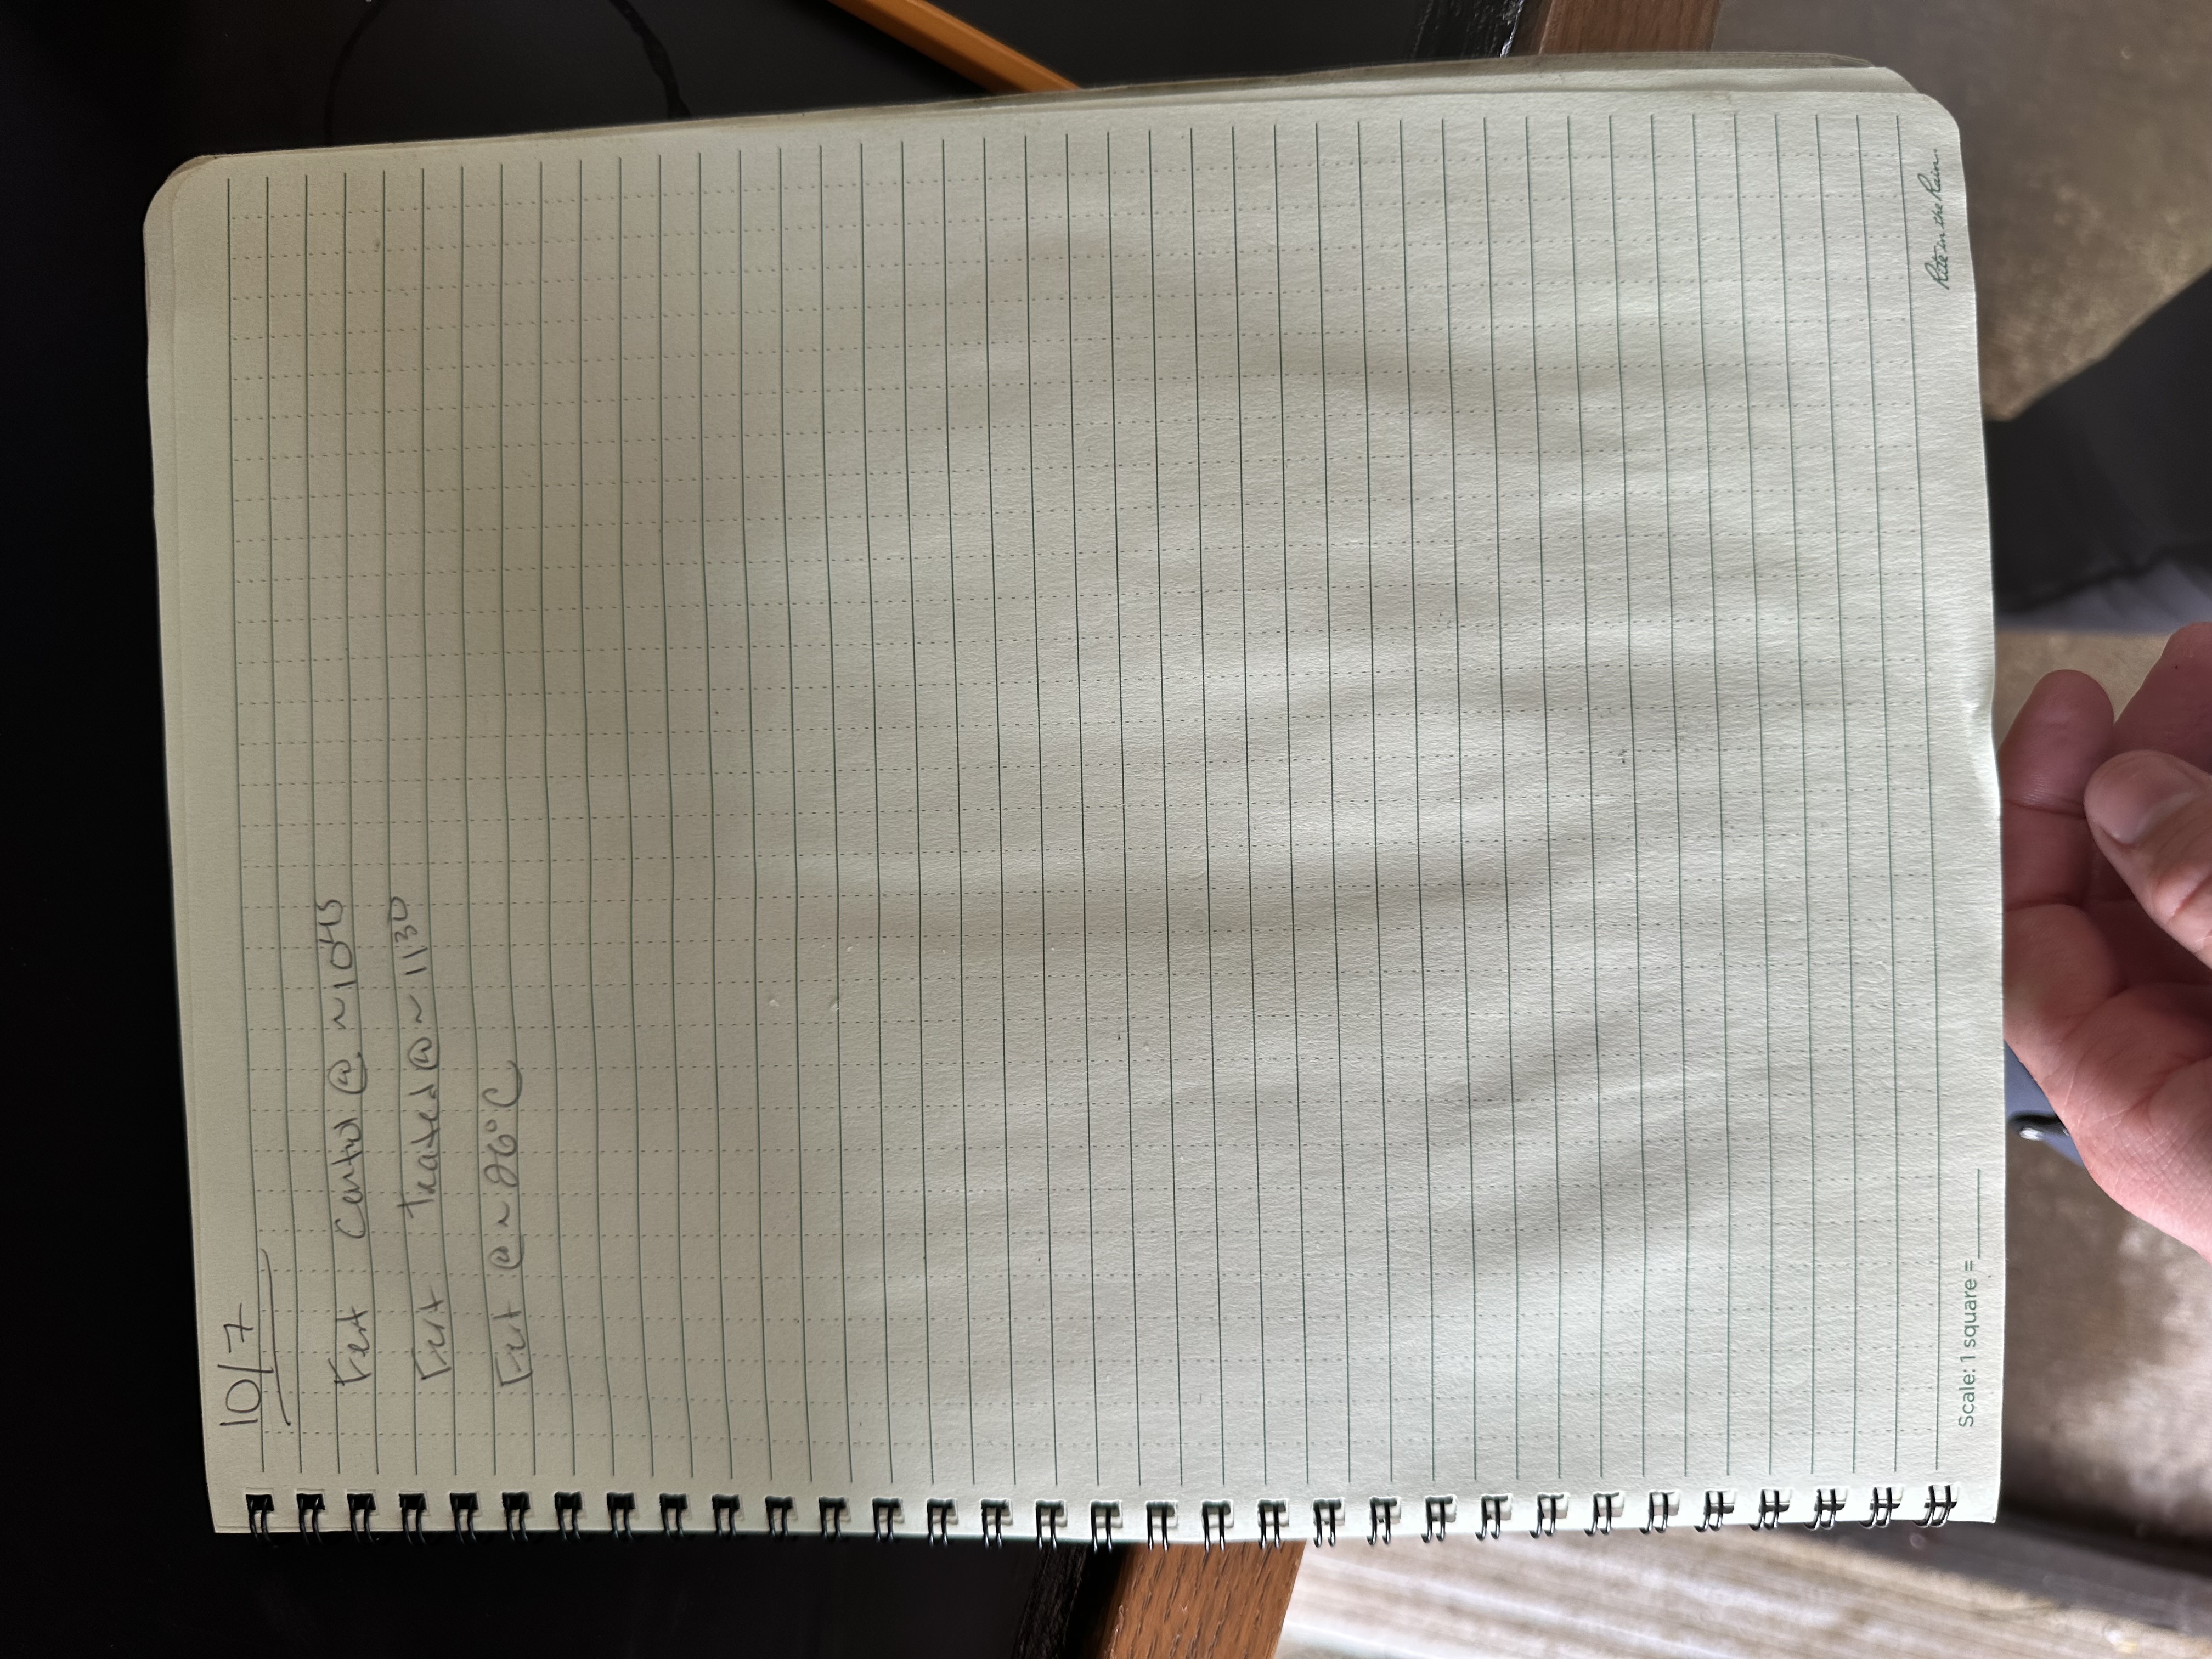 10/7
Fert Control @ ~1045
Fert Treated @ ~1130
Fert @ ~26°C
Scale: 1 square =
Rite in the Rain